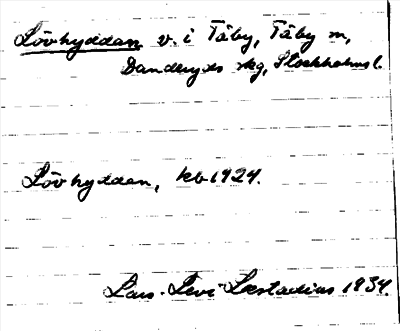 Lövhyddan v. i Täby, Täby sn,
Danderyds skg, Stockholms l.
Lövhyddan, kb 1924.
Lars-Levi Læstadius 1934.